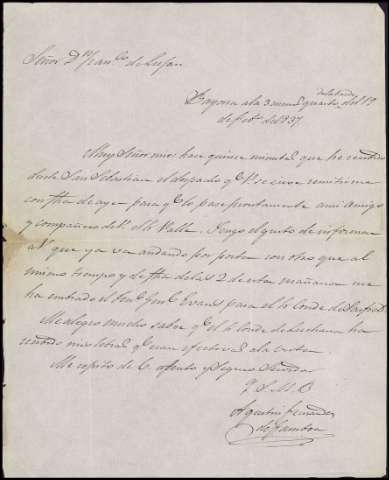 Señor Dn Franco de Lujan
Bayona a las 3 menos quarto de la tarde del 19
de Feb. del 837.
Muy Señor mio: hace quince minutos que he recibido
desde San Sebastian el despacho qe V. se sirve remitirme
con fha de ayer para qe lo pase prontamente a mi amigo
y compañero de V. el Sr Valle. Tengo el gusto de informar
a V. que ya va andando por posta con otro que al
mismo tiempo y de fha de las 2 de esta mañana me
ha enviado el Genl Evans para el Conde de
Me alegro mucho saber qe el Sr Conde de Luchana ha
recibido mis letras qe eran efectivas a la vista.
Me repito de V. afento y Seguro Servidor
Q. S. M. B.
Agustin Fernandez
de Gamboa